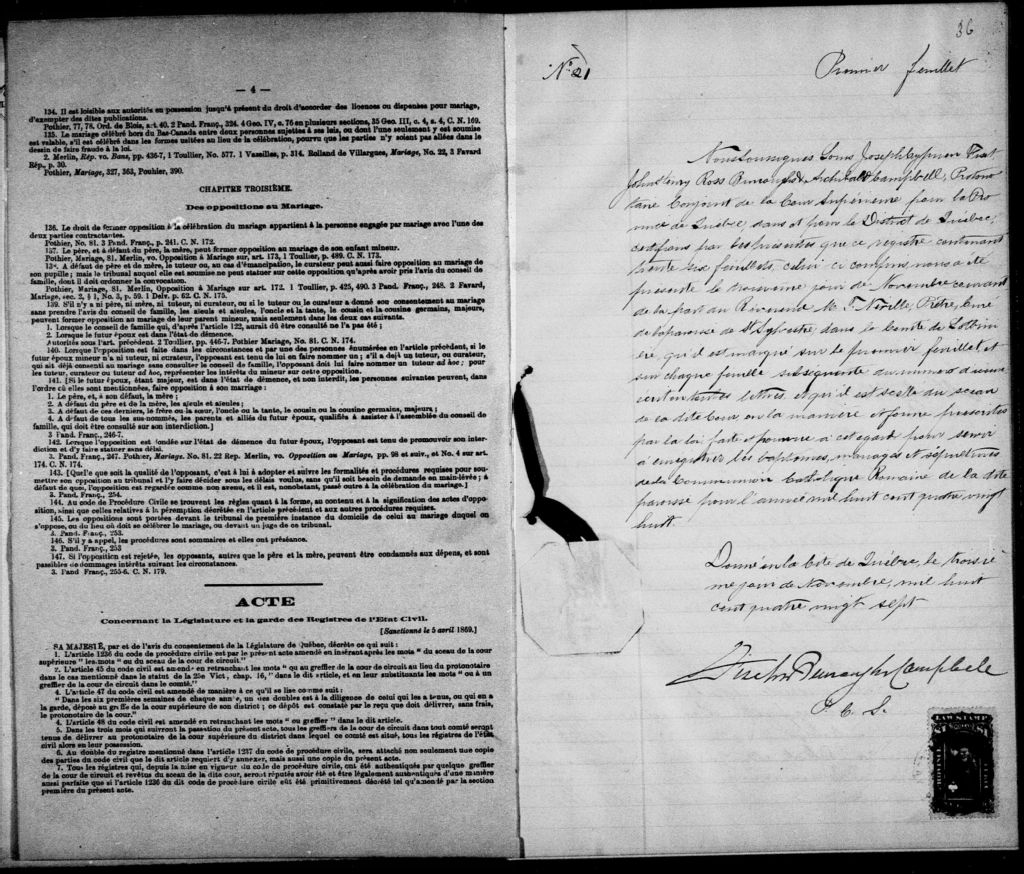 — 4 —
134. Il est loisible aux autorités en possession jusqu'à présent du droit d'accorder des licences ou dispenses pour mariage,
d'exempter des dites publications.
Pothier, 77, 78. Ord. de Blois, art. 40. 2 Pand. Franç., 324. 4 Geo. IV, c. 76 en plusieurs sections, 35 Geo. III, c. 4, s. 4, C. N. 169.
135. Le mariage célébré hors du Bas-Canada entre deux personnes sujettes à ses lois, ou dont l'une seulement y est soumise
est valable, s'il est célébré dans les formes usitées au lieu de la célébration, pourvu que les parties n'y soient pas allées dans le
dessein de faire fraude à la loi.
2. Merlin, Rép. vo. Bans, pp. 436-7, 1 Toullier, No. 577. 1 Vazeilles, p. 314. Rolland de Villargues, Mariage, No. 22, 3 Favard
Rép., p. 30.
Pothier, Mariage, 327, 363, Pouhier, 390.
CHAPITRE TROISIÈME.
Des oppositions au Mariage.
136. Le droit de former opposition à la célébration du mariage appartient à la personne engagée par mariage avec l'une des
deux parties contractantes.
Pothier, No. 81. 3 Pand. Franç., p. 241. C. N. 172.
137. Le père, et à défaut du père, la mère, peut former opposition au mariage de son enfant mineur.
Pothier, Mariage, 81. Merlin, vo. Opposition à Mariage sur, art. 173, 1 Toullier, p. 489. C. N. 173.
138. A défaut de père et de mère, le tuteur ou, au cas d'émancipation, le curateur peut aussi faire opposition au mariage de
son pupille; mais le tribunal auquel elle est soumise ne peut statuer sur cette opposition qu'après avoir pris l'avis du conseil de
famille, dont il doit ordonner la convocation.
Pothier, Mariage, 81. Merlin, Opposition à Mariage sur art. 172. 1 Toullier, p. 425, 490. 3 Pand. Franç., 248. 2 Favard,
Mariage, sec. 2, § 1, No. 3, p. 59. 1 Delv. p. 62. C. N. 175.
139. S'il n'y a ni père, ni mère, ni tuteur, ni curateur, ou si le tuteur ou le curateur a donné son consentement au mariage
sans prendre l'avis du conseil de famille, les aïeuls et aïeules, l'oncle et la tante, le cousin et la cousine germains, majeurs,
peuvent former opposition au mariage de leur parent mineur, mais seulement dans les deux cas suivants.
1. Lorsque le conseil de famille qui, d'après l'article 122, aurait dû être consulté ne l'a pas été;
2. Lorsque le futur époux est dans l'état de démence.
Autorités sous l'art. précédent. 2 Toullier, pp. 446-7. Pothier Mariage, No. 81. C. N. 174.
140. Lorsque l'opposition est faite dans les circonstances et par une des personnes énumérées en l'article précédent, si le
futur époux mineur n'a ni tuteur, ni curateur, l'opposant est tenu de lui en faire nommer un; s'il a déjà un tuteur, ou curateur,
qui ait déjà consenti au mariage sans consulter le conseil de famille, l'opposant doit lui faire nommer un tuteur ad hoc; pour
les tuteur, curateur ou tuteur ad hoc, représenter les intérêts du mineur sur cette opposition.
141. [Si le futur époux, étant majeur, est dans l'état de démence, et non interdit, les personnes suivantes peuvent, dans
l'ordre où elles sont mentionnées, faire opposition à son mariage:
1. Le père, et, à son défaut, la mère;
2. A défaut du père et de la mère, les aïeuls et aïeules;
3. A défaut de ces derniers, le frère ou la sœur, l'oncle ou la tante, le cousin ou la cousine germains, majeurs;
4. A défaut de tous les sus-nommés, les parents et alliés du futur époux, qualifiés à assister à l'assemblée du conseil de
famille, qui doit être consulté sur son interdiction.]
3 Pand. Franç., 246-7.
142. Lorsque l'opposition est fondée sur l'état de démence du futur époux, l'opposant est tenu de promouvoir son inter-
diction et d'y faire statuer sans délai.
3. Pand. Franç., 247. Pothier, Mariage. No. 81. 22 Rep. Merlin, vo. Opposition au Mariage, pp. 98 et suiv., et No. 4 sur art.
174. C. N. 174.
143. [Quel'e que soit la qualité de l'opposant, c'est à lui à adopter et suivre les formalités et procédures requises pour sou-
mettre son opposition au tribunal et l'y faire décider sous les délais voulus, sans qu'il soit besoin de demande en main-levée; à
défaut de quoi, l'opposition est regardée comme non avenu, et il est, nonobstant, passé outre à la célébration du mariage.]
3. Pand. Franç., 254.
144. Au code de Procédure Civile se trouvent les règles quant à la forme, au contenu et à la signification des actes d'oppo-
sition, ainsi que celles relatives à la péremption décrétée en l'article précédent et aux autres procédures requises.
145. Les oppositions sont portées devant le tribunal de première instance du domicile de celui au mariage duquel on
s'oppose, ou du lieu où doit se célébrer le mariage, ou devant un juge de ce tribunal.
3. Pand. Franç., 253.
146. S'il y a appel, les procédures sont sommaires et elles ont préséance.
3. Pand. Franç., 253
147. Si l'opposition est rejetée, les opposants, autres que le père et la mère, peuvent être condamnés aux dépens, et sont
passibles de dommages intérêts suivant les circonstances.
3. Pand Franç., 255-6. C. N. 179.
ACTE
Concernant la Législature et la garde des Registres de l'Etat Civil.
[Sanctionné le 5 avril 1869.]
SA MAJESTÉ, par et de l'avis du consentement de la législature de Québec, décrète ce qui suit:
1. L'article 1236 du code de procédure civile est par le présent acte amendé en insérant après les mots "du sceau de la cour
supérieure" les mots "ou du sceau de la cour de circuit."
2. L'article 45 du code civil est amendé en retranchant les mots "qu au greffier de la cour de circuit au lieu du protonotaire
dans le cas mentionné dans le statut de la 25e Vict, chap. 16," dans le dit article, et en leur substituants les mots "ou à un
greffier de la cour de circuit dans le comté."
4. L'article 47 du code civil est amendé de manière à ce qu'il se lise comme suit:
"Dans les six premières semaines de chaque année, un des doubles est à la diligence de celui qui les a tenus, ou qui en a
la garde, déposé au greffe de la cour supérieure de son district; ce dépôt est constaté par le reçu que doit délivrer, sans frais,
le protonotaire de la cour."
4. L'article 48 du code civil est amendé en retranchant les mots "ou greffier" dans le dit article.
5. Dans les trois mois qui suivront la passation du présent acte, tous les greffiers de la cour de circuit dans tout comté seront
tenus de délivrer au protonotaire de la cour supérieure du district dans lequel ce comté est situé, tous les régistres de l'état
civil alors en leur possession.
6. Au double du registre mentionné dans l'article 1237 du code de procédure civile, sera attaché non seulement une copie
des parties du code civil que le dit article requiert d'y annexer, mais aussi une copie du présent acte.
7. Tous les régistres qui, depuis la mise en vigueur du code de procédure civile, ont été authentiqués par quelque greffier
de la cour de circuit et revêtus du sceau de la dite cour, seront réputés avoir été et être légalement authentiqués d'une manière
aussi parfaite que si l'article 1236 du dit code de procédure civile eût été primitivement décrété tel qu'amendé par la section
première du présent acte.
36
No 21
Premier feuillet
Nous Soussignés Louis Joseph Cyprien Fiset
John Henry Ross Burroughs & Archibald Campbell, Protono
taire Conjoint de la Cour Supérieure pour la Pro
vince de Québec dans et pour le District de Québec,
certifions par ces présentes que ce registre contenant
trente six feuillets, celui ci compris, nous a été
présenté le troisième jour de Novembre courant
de la part du Révérend Mr. J. Neville, Prêtre, Curé
de la paroisse de St Sylvestre dans le Comté de Lotbini
ère, qu'il est marqué sur le premier feuillet et
sur chaque feuille subséquente du numéro d'icelui
écrit en toutes lettres, et qu'il est scellé du sceau
de la dite Cour en la manière et forme prescrites
par la loi, faite et pourvue à cet égard pour servir
à enregistrer les baptêmes, mariages et sépultures
de la Communion Catholique Romaine de la dite
paroisse pour l'année mil huit cent quatre vingt
huit
Donné en la Cité de Québec, le troisiè
me jour de Novembre, mil huit
cent quatre vingt sept
Fiset Burroughs Campbell
P. C. S.
LAW STAMP